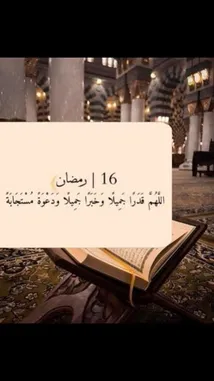 16 | رمضان
اللَّهُمَّ قَدَرًا جَمِيلًا وَخَبَرًا جَمِيلًا وَدَعْوَةً مُسْتَجَابَةً